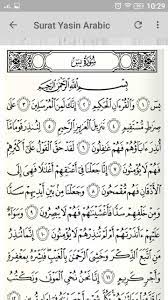 10:29
Surat Yasin Arabic
سُورَةُ يسٓ
بِسْمِ ٱللَّهِ ٱلرَّحْمَٰنِ ٱلرَّحِيمِ
يسٓ ١ وَٱلْقُرْءَانِ ٱلْحَكِيمِ ٢ إِنَّكَ لَمِنَ ٱلْمُرْسَلِينَ ٣ عَلَىٰ
صِرَٰطٍ مُّسْتَقِيمٍ ٤ تَنزِيلَ ٱلْعَزِيزِ ٱلرَّحِيمِ ٥ لِتُنذِرَ قَوْمًا مَّآ
أُنذِرَ ءَابَآؤُهُمْ فَهُمْ غَٰفِلُونَ ٦ لَقَدْ حَقَّ ٱلْقَوْلُ عَلَىٰٓ أَكْثَرِهِمْ
فَهُمْ لَا يُؤْمِنُونَ ٧ إِنَّا جَعَلْنَا فِىٓ أَعْنَٰقِهِمْ أَغْلَٰلًا فَهِىَ إِلَى
ٱلْأَذْقَانِ فَهُم مُّقْمَحُونَ ٨ وَجَعَلْنَا مِنۢ بَيْنِ أَيْدِيهِمْ سَدًّا
وَمِنْ خَلْفِهِمْ سَدًّا فَأَغْشَيْنَٰهُمْ فَهُمْ لَا يُبْصِرُونَ ٩ وَسَوَآءٌ
عَلَيْهِمْ ءَأَنذَرْتَهُمْ أَمْ لَمْ تُنذِرْهُمْ لَا يُؤْمِنُونَ ١٠ إِنَّمَا تُنذِرُ
مَنِ ٱتَّبَعَ ٱلذِّكْرَ وَخَشِىَ ٱلرَّحْمَٰنَ بِٱلْغَيْبِ فَبَشِّرْهُ بِمَغْفِرَةٍ
وَأَجْرٍ كَرِيمٍ ١١ إِنَّا نَحْنُ نُحْىِ ٱلْمَوْتَىٰ وَنَكْتُبُ